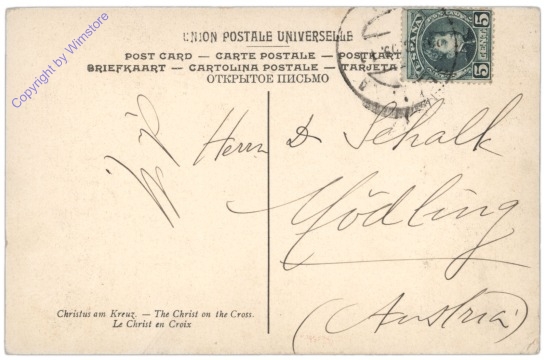 Copyright by Wimstore
UNION POSTALE UNIVERSELLE
POST CARD — CARTE POSTALE — POSTKART
BRIEFKAART — CARTOLINA POSTALE — TARJETA
ОТКРЫТОЕ ПИСЬМО
ESPAÑA
5 5
Herrn D Schalk
Mödling
(Austria)
Christus am Kreuz. — The Christ on the Cross.
Le Christ en Croix